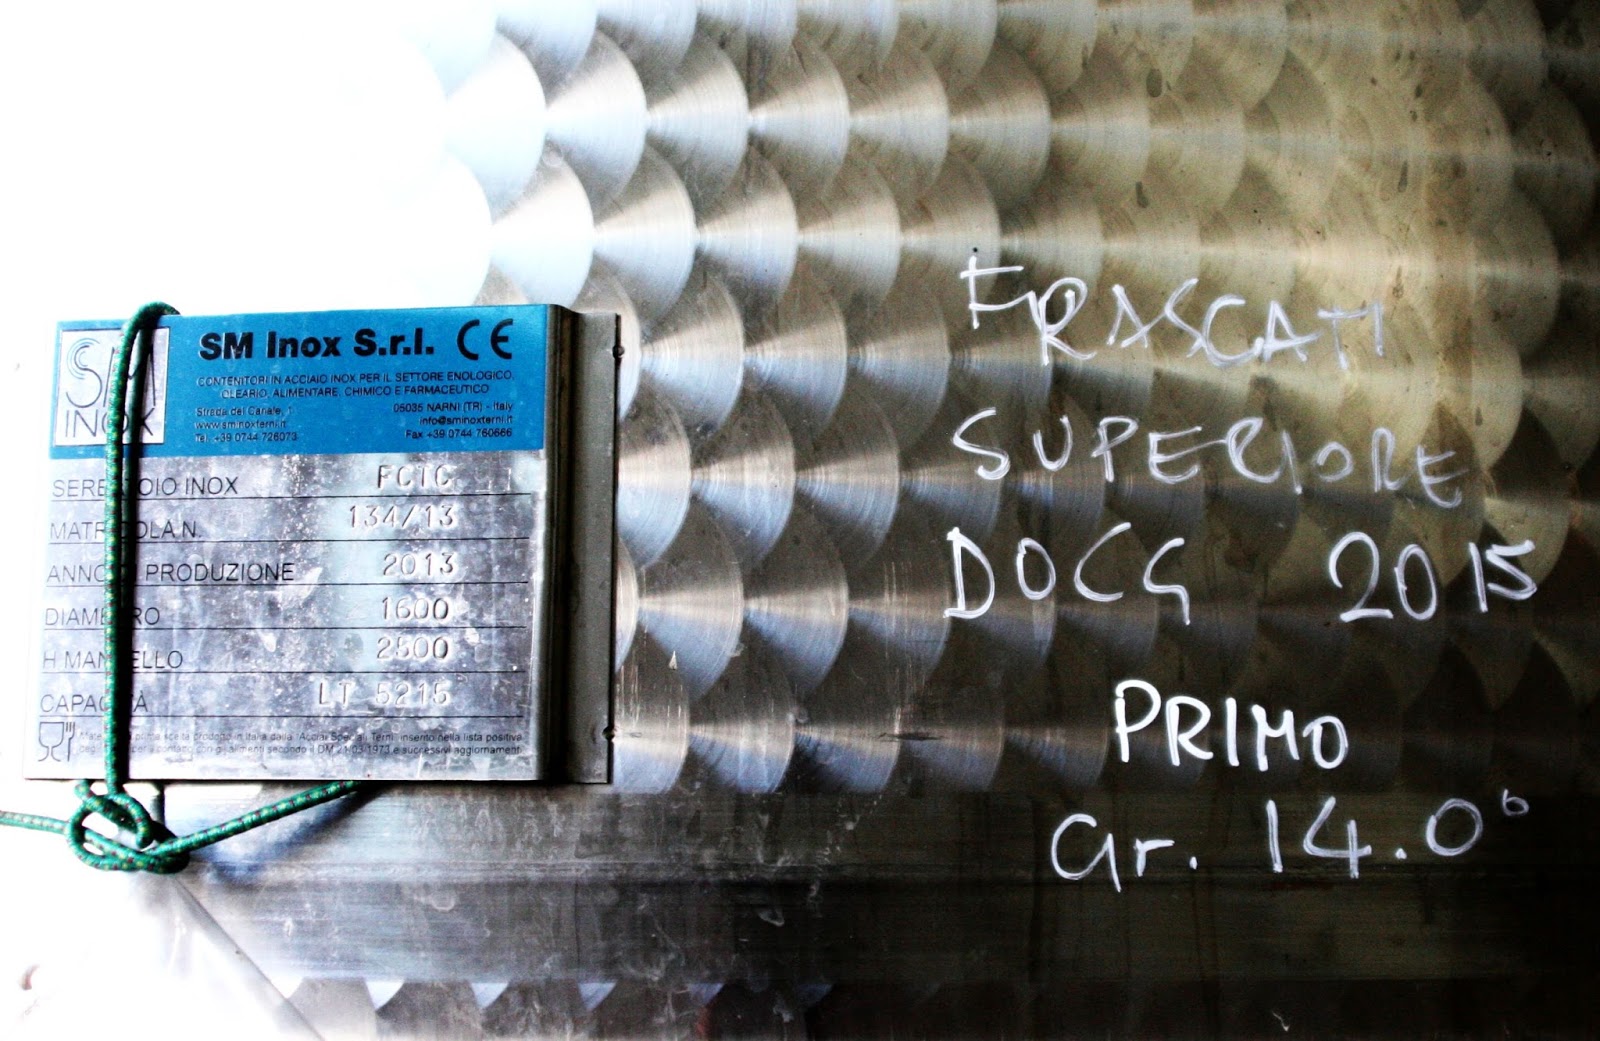 SM
INOX
SM Inox S.r.l. CE
CONTENITORI IN ACCIAIO INOX PER IL SETTORE ENOLOGICO,
OLEARIO, ALIMENTARE, CHIMICO E FARMACEUTICO
Strada del Canale, 1 05035 NARNI (TR) - Italy
www.sminoxterni.it info@sminoxterni.it
Tel. +39 0744 726073 Fax +39 0744 760666
INOX FCTC
N. 134/13
PRODUZIONE 2013
1600
H 2500
LT 5215
prima scelta prodotto in Italia dalla "Acciai Speciali Terni" inserito nella lista positiva
per il contatto con gli alimenti secondo il DM 21/03/1973 e successivi aggiornamenti
FRASCATI
SUPERIORE
DOCG 2015
PRIMO
Gr. 14.0°